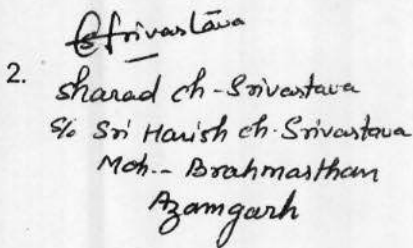 Srivastava
2.
Sharad ch-Srivastava
S/o Sri Harish ch. Srivastava
Moh.- Brahmasthan
Azamgarh